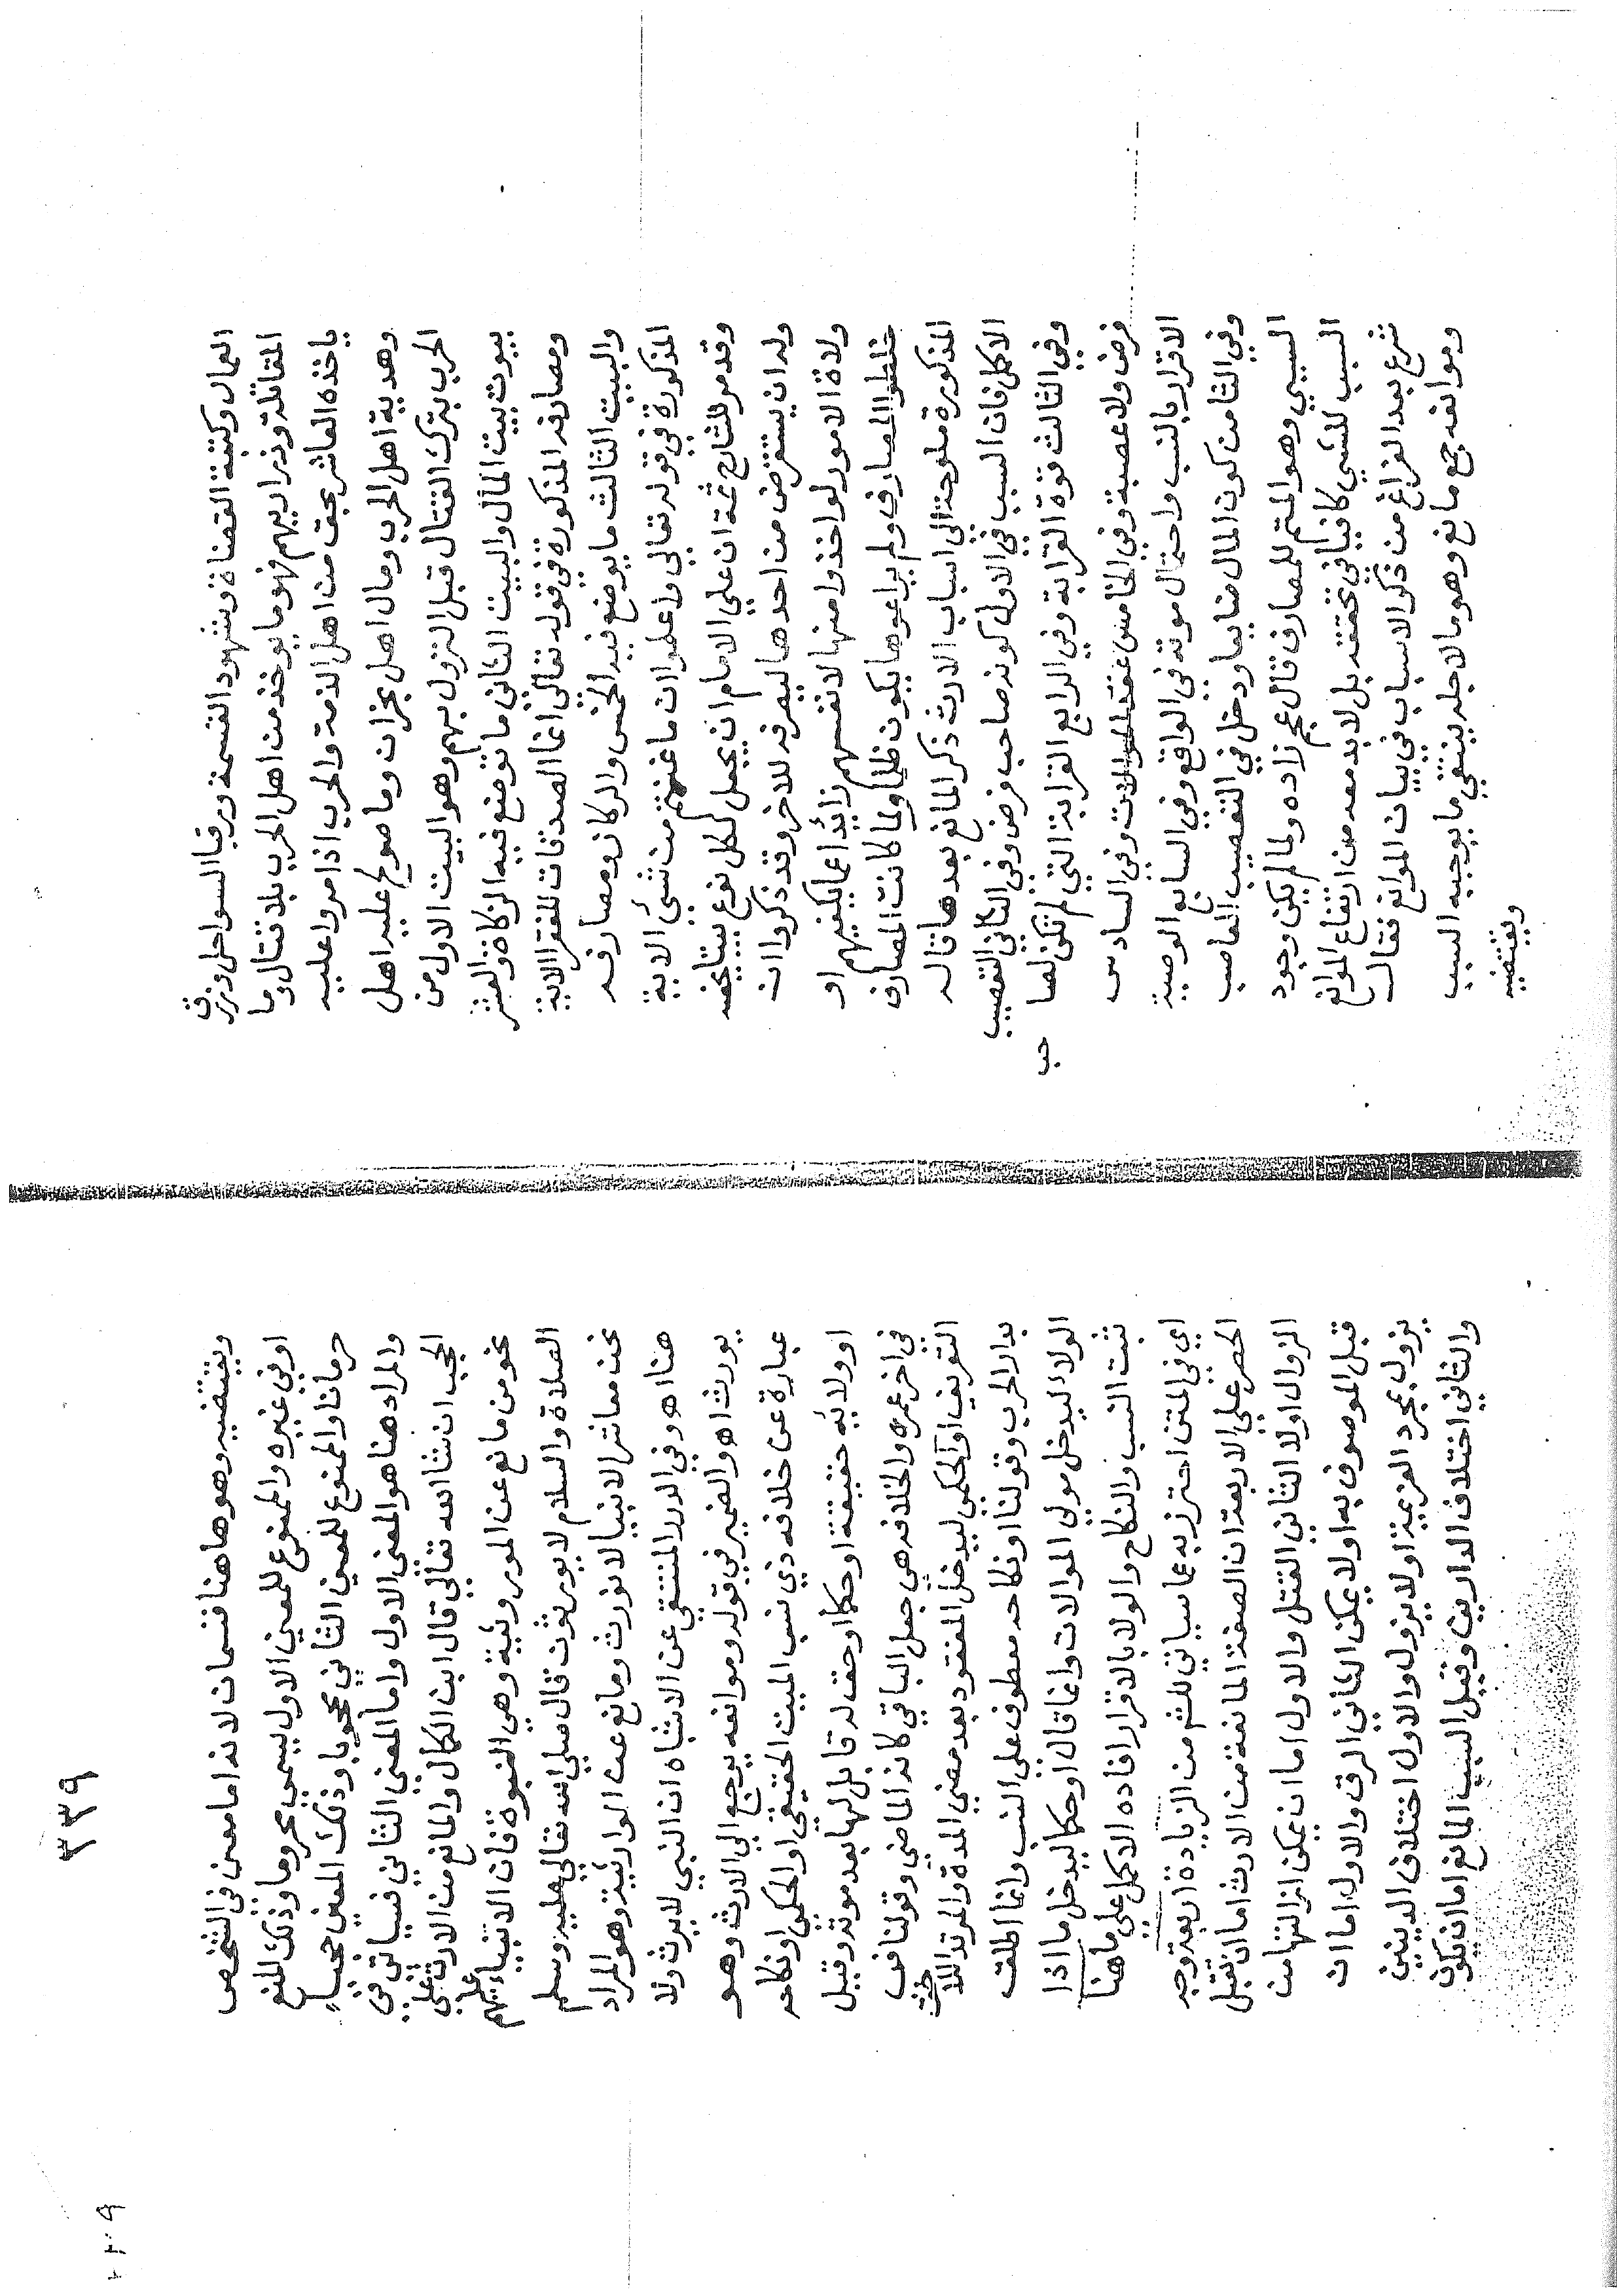 العمال وكتبة القضاة وشهود القسمة ورقبا السواحل ورزق
المقاتلة وذراريهم فهو ما يوخذ من اهل الحرب بلا قتال وما
ياخذه العاشر بحق من اهل الذمة والحرب اذا مروا عليه
وهدية اهل الحرب ومال اهل نجران وما صولح عليه اهل
الحرب بترك القتال قبل النزول بهم وهو البيت الاول من
بيوت بيت المال والبيت الثاني ما توضع فيه الزكاة والعشر
ومصارفه المذكورة في قوله تعالى انما الصدقات للفقرا الاية
والبيت الثالث ما يوضع فيه الخمس والركاز ومصارفه
المذكورة في قوله تعالي واعلموا ان ما غنمتم من شي الاية
وقد مر للشارح ثمة ان علي الامام ان يجعل لكل نوع بيتا يخصه
وله ان يستقرض من احدها ليصرفه للاخر وقد ذكروا ان
ولاة الامور لو اخذوا منها لانفسهم زائدا عما يكفيهم او
خلطوا المصارف ولم يراعوها يكون ظلما ولما كانت المصارف
المذكورة ملوحة الي اسباب الارث ذكر المانع بعدها قاله
الاكمل فان السبب في الاول كونه صاحب فرض وفي الثاني التعصيب
وفي الثالث قوة القرابة وفي الرابع القرابة التي لم تكن لصا حب
فرض ولا عصبة وفي الخامس عقد الموالات وفي السادس
الاقرار بالنسب واحتمال موته في الواقع وفي السابع الوصية
وفي الثامن كون المال ضايعا ودخل في التعصيب العاصب
السببي وهو المتمم للمصارف قال عجم زاده ولما لم يكن وجود
السبب للشي كافيا في تحققه بل لابد معه من ارتفاع الموانع
شرع بعد الفراغ من ذكر الاسباب في بيان الموانع فقال
وموانعه جمع مانع وهو ما لاجله ينتفي ما يوجبه السبب
ويقتضيه
٣٣٩
ويقتضيه وهو هاهنا قسمان لانه اما معين في الشخص
او في غيره والممنوع للمعني الاول يسمي محروما وذلك المنع
حرمانا والممنوع للمعني الثاني محجوبا وذلك المعني حجبا
والمراد هنا هو المعنى الاول واما المعني الثاني فسياتي في
الحجب ان شا الله تعالي قال ابن الكمال والمانع من الارث علي
نحو من مانع عن المورثية وهي النبوة فان الانبياء عليهم
الصلاة والسلام لا يورثون قال صلي الله تعالي عليه وسلم
نحن معاشر الانبيا لا نورث ومانع عن الوارثية وهو المراد
هنا اهـ وفي الدر المنتقي عن الاشباه ان النبي لا يرث ولا
يورث اهـ والضمير في قوله وموانعه يرجع الي الارث وهو
عبارة عن خلافه ذي نسب الميت الحقيقي او الحكمي او نكاحه
او ولائه حقيقة او حكما وحق له قابل لها بعد موته وقيل
في اخر عمره والخلافه هي جعل الباقي كانه الماضي وقولنا في
التعريف او الحكمي ليدخل المفقود بعد مضي المدة والمرتد اللاحق
بدار الحرب وقولنا او نكاحه معطوف علي النسب وانما اطلق
الولا ليدخل مولي الموالات وانما قال او حكما ليدخل ما اذا
ثبت النسب والنكاح والولا بالاقرار افاده الاكمل علي ما هنا
اي في المتن احترز به عما سياتي للش من الزيادة اربعة وجه
الحصر علي الاربعة ان الصفة المانعة من الارث اما ان تقبل
الزوال او لا الثاني القتل والاول اما ان يمكن ازالتها من
قبل الموصوف به او لا يمكن الثاني الرق والاول اما ان
يزول بمجرد العزيمة او لا يزول والاول اختلاف الدينين
والثاني اختلاف الدارين وقيل السبب المانع اما ان يكون